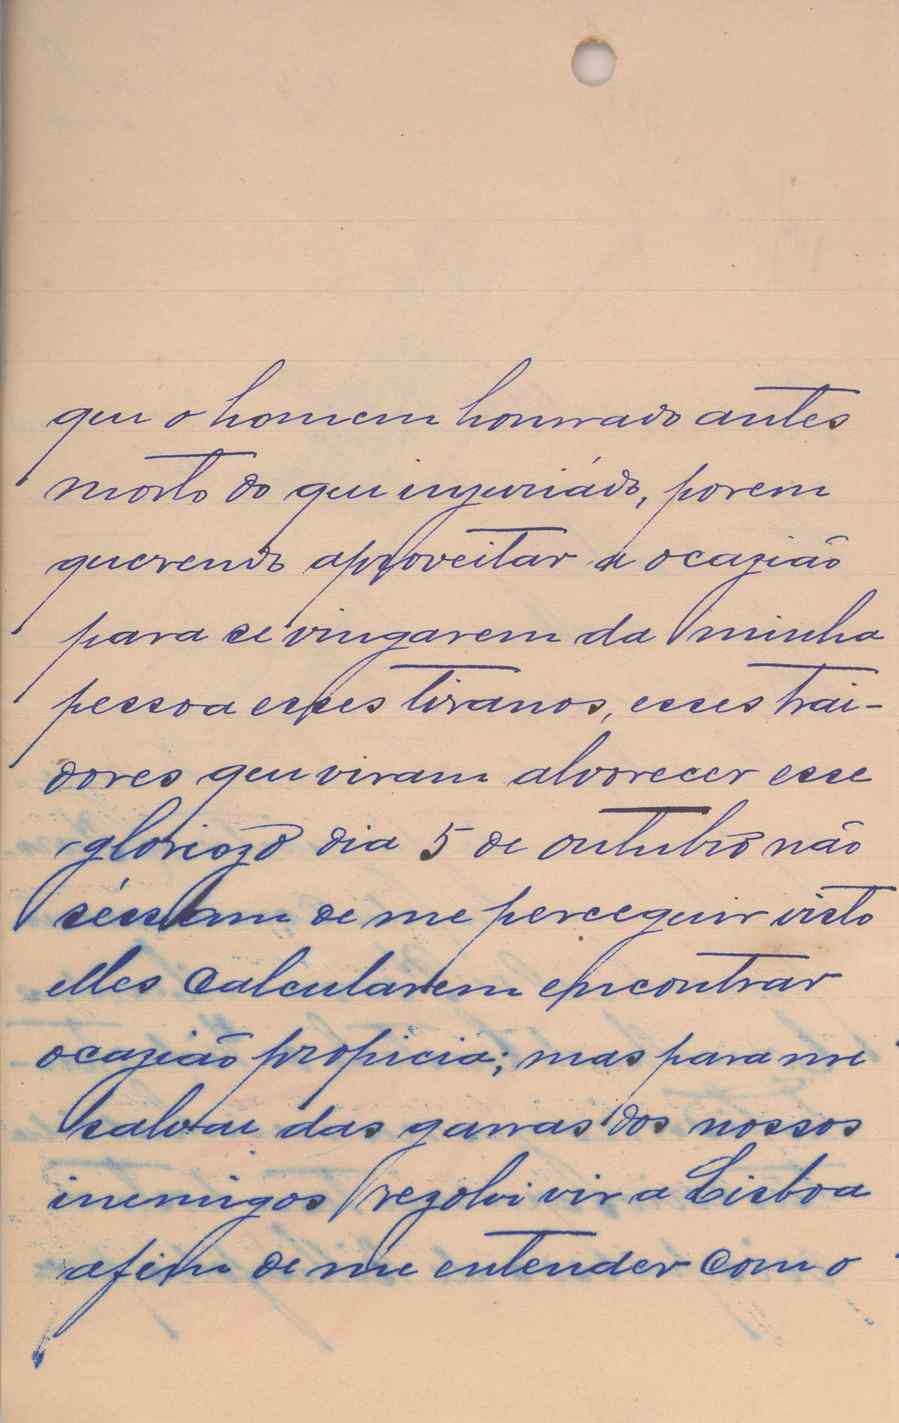 que o homem honrrado antes
morto do que injuriádo, porem
querendo aproveitar a ocazião
para se vingarem da minha
pessoa esses tiranos, esses trai-
dores que viram alvorecer esse
gloriozo dia 5 de outubro não
séssam de me perceguir visto
elles calcularem encontrar
ocazião propicia; mas para me
salvar das garras dos nossos
inemigos rezolvi vir a Lisboa
afim de me entender com o